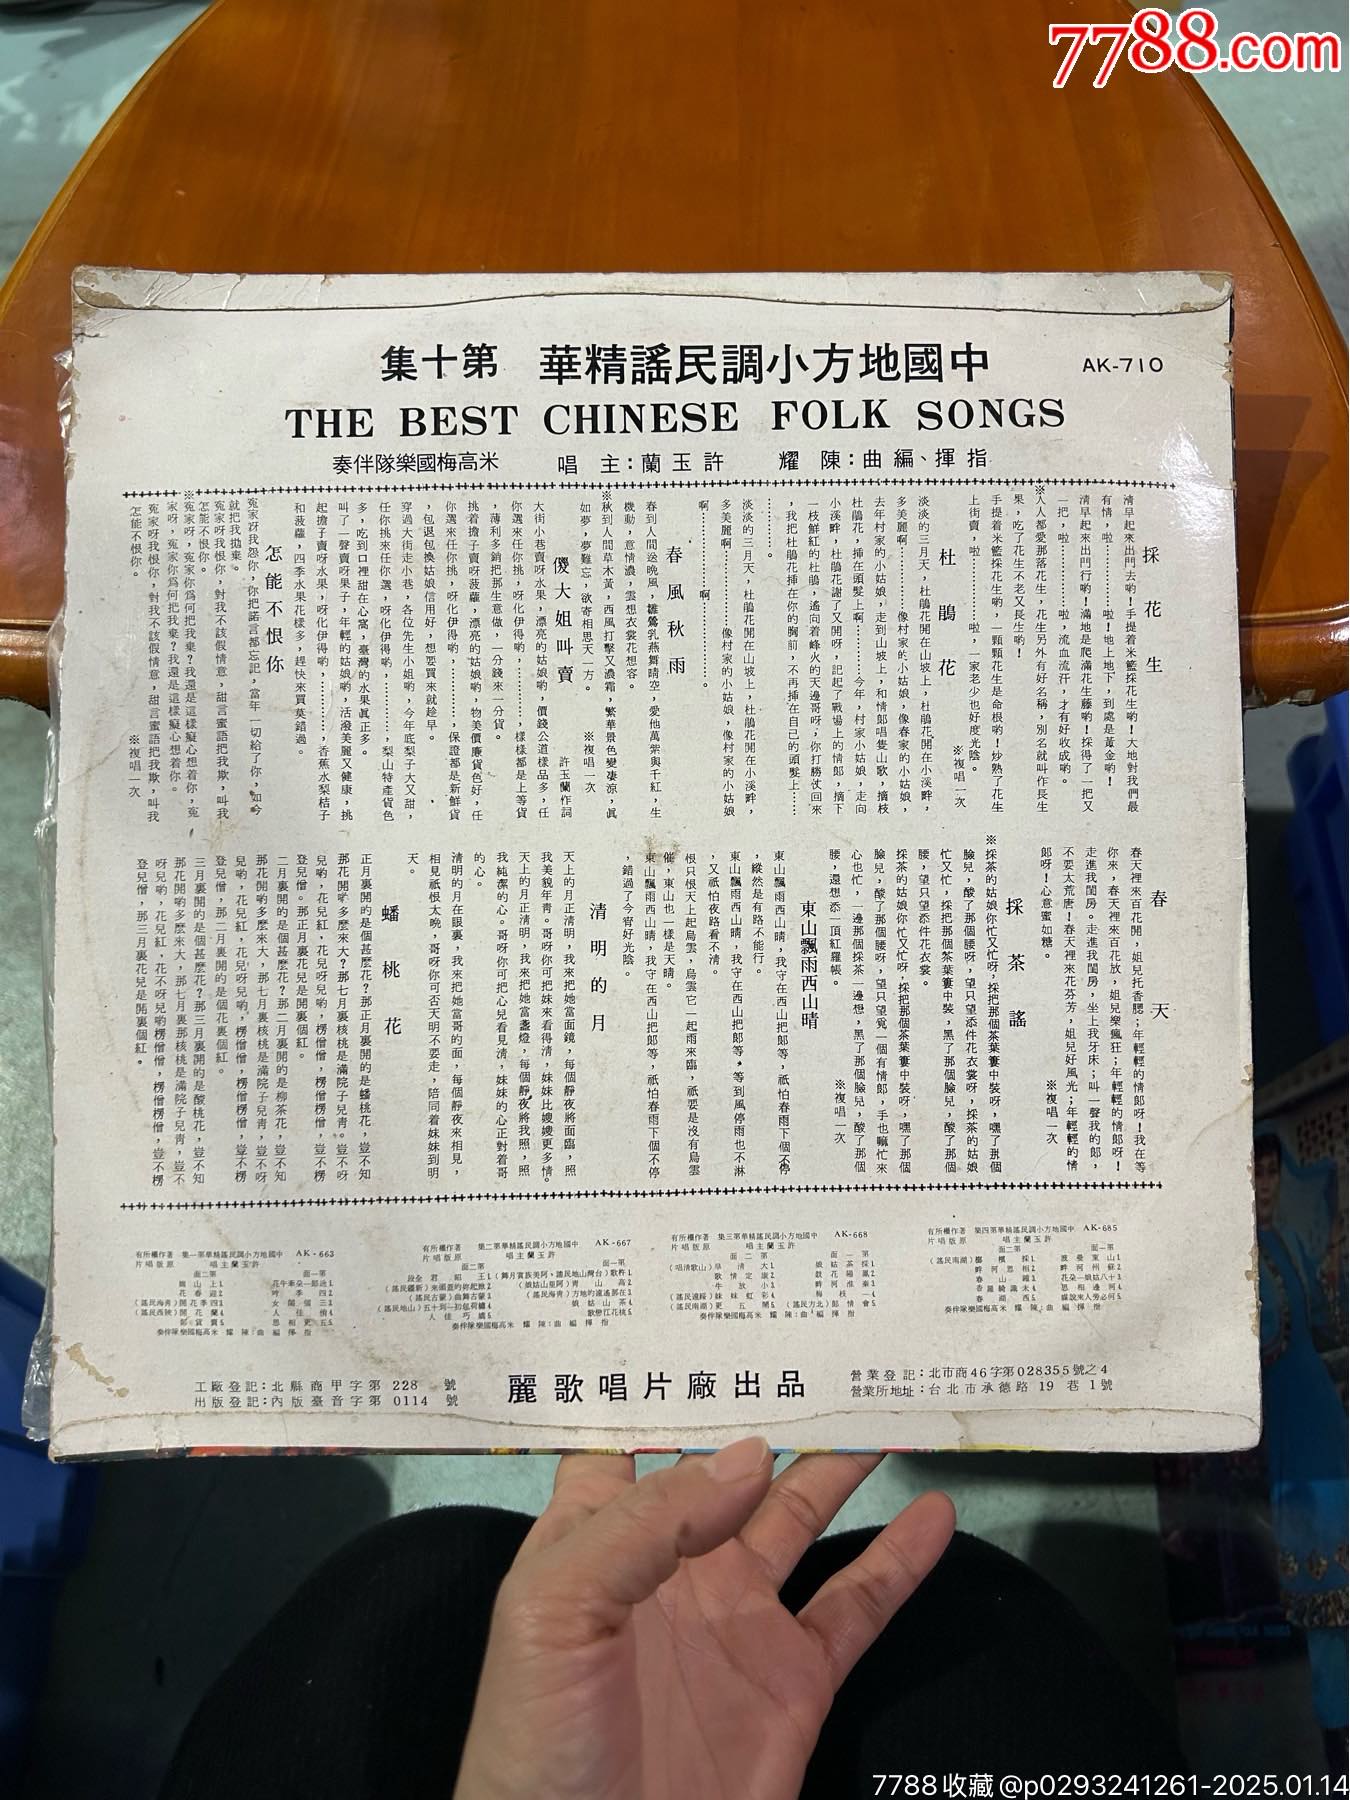 7788.com
中國地方小調民謠精華 第十集
AK-710
THE BEST CHINESE FOLK SONGS
指揮、編曲：陳 耀 許玉蘭：主 唱 米高梅國樂隊伴奏
採花生
有情，啦！………啦！地上地下，到處是黃金喲！
清早起來出門行喲！滿地是爬滿花生藤喲！採得了一把又
一把，啦，………啦，流血流汗，才有好收成喲。
※人人都愛那落花生，花生另外有好名稱，別名就叫作長生
果，吃了花生不老又長生喲！
手提着米籃採花生喲，一顆顆花生是命根喲！炒熟了花生
上街賣，啦………啦，一家老少也好度光陰。
※複唱一次
杜鵑花
淡淡的三月天，杜鵑花開在山坡上，杜鵑花開在小溪畔，
多美麗啊………像村家的小姑娘，像春家的小姑娘，
去年村家的小姑娘，走到山坡上，和情郎唱隻山歌，摘枝
杜鵑花，插在頭髮上啊………今年，村家小姑娘，走向
小溪畔，杜鵑花謝了又開呀，記起了戰場上的情郎，摘下
一枝鮮紅的杜鵑，遙向着峰火的天邊哥呀，你打勝仗回來
，我把杜鵑花插在你的胸前，不再插在自己的頭髮上……
淡淡的三月天，杜鵑花開在山坡上，杜鵑花開在小溪畔，
多美麗啊………像村家的小姑娘，像村家的小姑娘
啊…………啊…………。
春風秋雨
春到人間送晚風，雛鶯乳燕舞晴空，愛他萬紫與千紅，生
機動，意情濃，雲想衣裳花想容。
※秋到人間草木黃，西風打擊又濃霜，繁華景色變凄涼，眞
如夢，夢難忘，欲寄相思天一方。
※複唱一次
傻大姐叫賣
許玉蘭作詞
大街小巷賣呀水果，漂亮的姑娘喲，價錢公道樣品多，任
你選來任你挑，呀化伊得喲，………，樣樣都是上等貨
，薄利多銷把那生意做，一分錢來一分貨。
挑着擔子賣呀菠蘿，漂亮的姑娘喲，物美價廉貨色好，任
你選來任你挑，呀化伊得喲，………，保證都是新鮮貨
，包退包換姑娘信用好，想要買來就趁早。
穿過大街走小巷，各位先生小姐喲，今年底梨子大又甜，
任你挑來任你選，呀化伊得喲，………，梨山特產貨色
多，吃到口裡甜在心窩，臺灣的水果眞正多。
叫了一聲賣呀果子，年輕的姑娘喲，活潑美麗又健康，挑
起擔子賣呀水果，呀化伊得喲，………，香蕉水梨桔子
和菠蘿，四季水果花樣多，趕快來買莫錯過。
怎能不恨你
冤家冴我怨你，你把諾言都忘記，當年一切給了你，如今
就把我拋棄。
冤家呀我恨你，對我不該假情意，甜言蜜語把我欺，叫我
怎能不恨你。
※冤家呀，冤家你爲何把我棄？我還是這樣癡心想着你，冤
家呀，冤家你爲何把我棄？我還是這樣癡心想着你。
冤家呀我恨你，對我不該假情意，甜言蜜語把我欺，叫我
怎能不恨你。
※複唱一次
春天
春天裡來百花開，姐兒托香腮；年輕輕的情郎呀！我在等
你來，春天裡來百花放，姐兒樂瘋狂；年輕輕的情郎呀！
走進我閨房。走進我閨房，坐上我牙床；叫一聲我的郎，
不要太荒唐！春天裡來花芬芳，姐兒好風光；年輕輕的情
郎呀！心意蜜如糖。
※複唱一次
採茶謠
※採茶的姑娘你忙又忙呀，採把那個茶葉簍中裝呀，嘿了那個
臉兒，酸了那個腰呀，望只望添件花衣裳呀，採茶的姑娘
忙又忙，採把那個茶葉簍中裝，黑了那個臉兒，酸了那個
腰，望只望添件花衣裳。
採茶的姑娘你忙又忙呀，採把那個茶葉簍中裝呀，嘿了那個
臉兒，酸了那個腰呀，望只望覓一個有情郎，手也嘛忙來
心也忙，一邊那個採茶一邊想，黑了那個臉兒，酸了那個
腰，還想悉一頂紅羅帳。
※複唱一次
東山飄雨西山晴
東山飄雨西山晴，我守在西山把郎等，祇怕春雨下個不停
，縱然是有路不能行。
東山飄雨西山晴，我守在西山把郎等，等到風停雨也不淋
，又祇怕夜路看不清。
恨只恨天上起烏雲，烏雲它一起雨來臨，祇要是沒有烏雲
催，東山也一樣是天晴。
東山飄雨西山晴，我守在西山把郎等，祇怕春雨下個不停
，錯過了今宵好光陰。
清明的月
天上的月正清明，我來把她當面鏡，每個靜夜將面臨，照
我美貌年青。哥呀你可把妹來看得清，妹妹比嫂嫂更多情。
天上的月正清明，我來把她當盞燈，每個靜夜將我照，照
我純潔的心。哥呀你可把心兒看見清，妹妹的心正對着哥
的心。
清明的月在眼裏，我來把她當哥的面，每個靜夜來相見，
相見祇恨太晚，哥呀你可否天明不要走，陪同着妹妹到明
天。
蟠桃花
正月裏開的是個甚麼花？那正月裏開的是蟠桃花，豈不知
那花開喲多麼來大？那七月裏核桃是滿院子兒靑。豈不呀
兒喲，花兒紅，花兒呀兒喲，楞僧僧，楞僧楞僧，豈不楞
登兒僧。那正月裏花兒是開裏個紅。
二月裏開的是個甚麼花？那二月裏開的是柳茶花，豈不知
那花開喲多麼來大，那七月裏核桃是滿院子兒靑，豈不呀
兒喲，花兒紅，花兒呀兒喲，楞僧僧，楞僧楞僧，豈不楞
登兒僧，那二月裏開的是個花裏個紅。
三月裏開的是個甚麼花？那三月裏開的是酸桃花，豈不知
那花開喲多麼來大，那七月裏那核桃是滿院子兒靑，豈不
呀兒喲，花兒紅，花不呀兒喲楞僧僧，楞僧楞僧，豈不楞
登兒僧，那三月裏花兒是開裏個紅。
AK-685 中國地方小調民謠精華第四集
許玉蘭主唱
AK-668 中國地方小調民謠精華第三集
許玉蘭主唱
AK-667 中國地方小調民謠精華第二集
許玉蘭主唱
AK-663 中國地方小調民謠精華第一集
許玉蘭主唱
指揮編曲：陳耀 米高梅國樂隊伴奏
工廠登記：北縣商甲字第 228 號
出版登記：內版臺音字第 0114 號
麗歌唱片廠出品
營業登記：北市商46字第028355號之4
營業所地址：台北市承德路19巷1號
7788收藏@p0293241261-2025.01.14